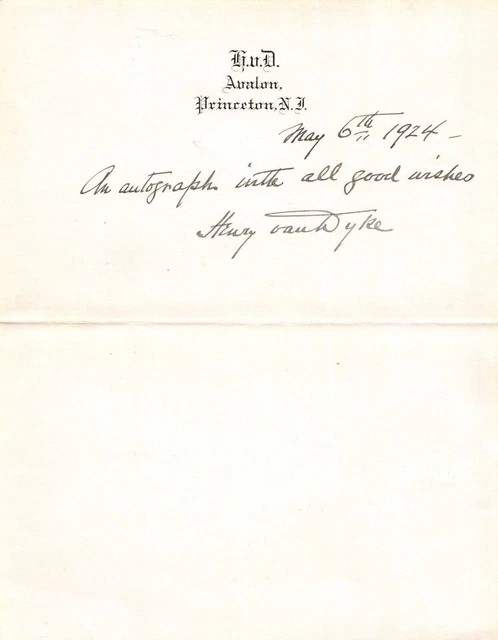 H.v.D.
Avalon,
Princeton, N.J.
May 6th 1924 –
An autograph with all good wishes
Henry van Dyke